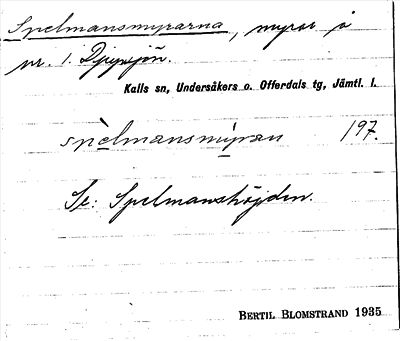 Spelmansmyrarna, myrar å
nr. 1. Djupsjön.
Kalls sn, Undersåkers o. Offerdals tg, Jämtl. l.
spèlmansmyran 197.
Se: Spelmanshöjden.
BERTIL BLOMSTRAND 1935